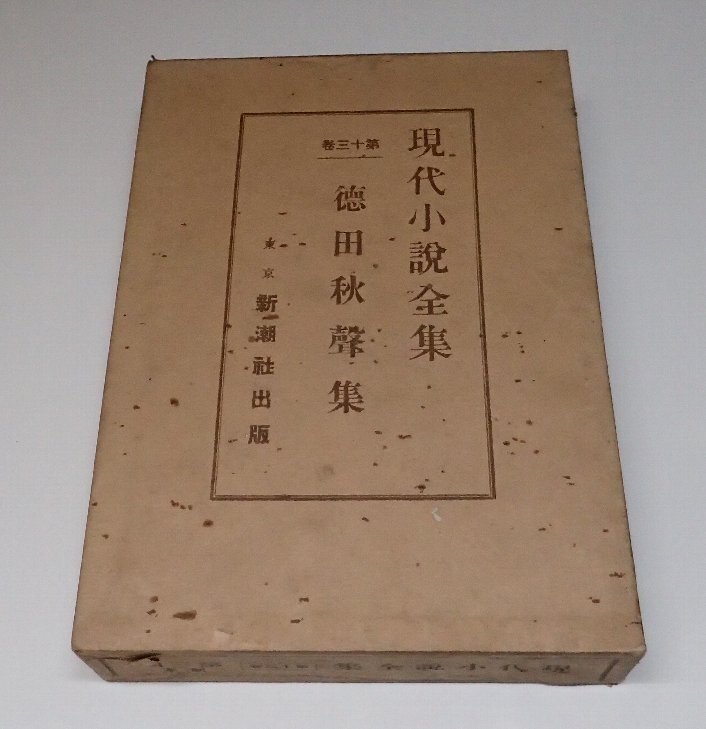 現代小說全集
第十三卷
德田秋聲集
東京 新潮社出版
現代小說全集